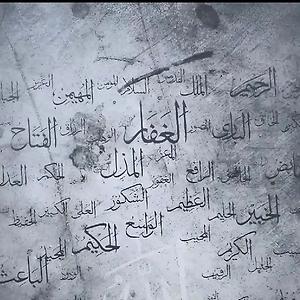 الرحيم الملك القدوس السلام المؤمن المهيمن العزيز الجبار
البارئ المصور الغفار الوهاب الرزاق الفتاح
القابض الخافض الرافع المعز المذل الحكم العدل
الخبير الحليم العظيم الغفور الشكور العلي الكبير الحفيظ
الجليل الكريم الرقيب المجيب الواسع الحكيم المجيد الباعث